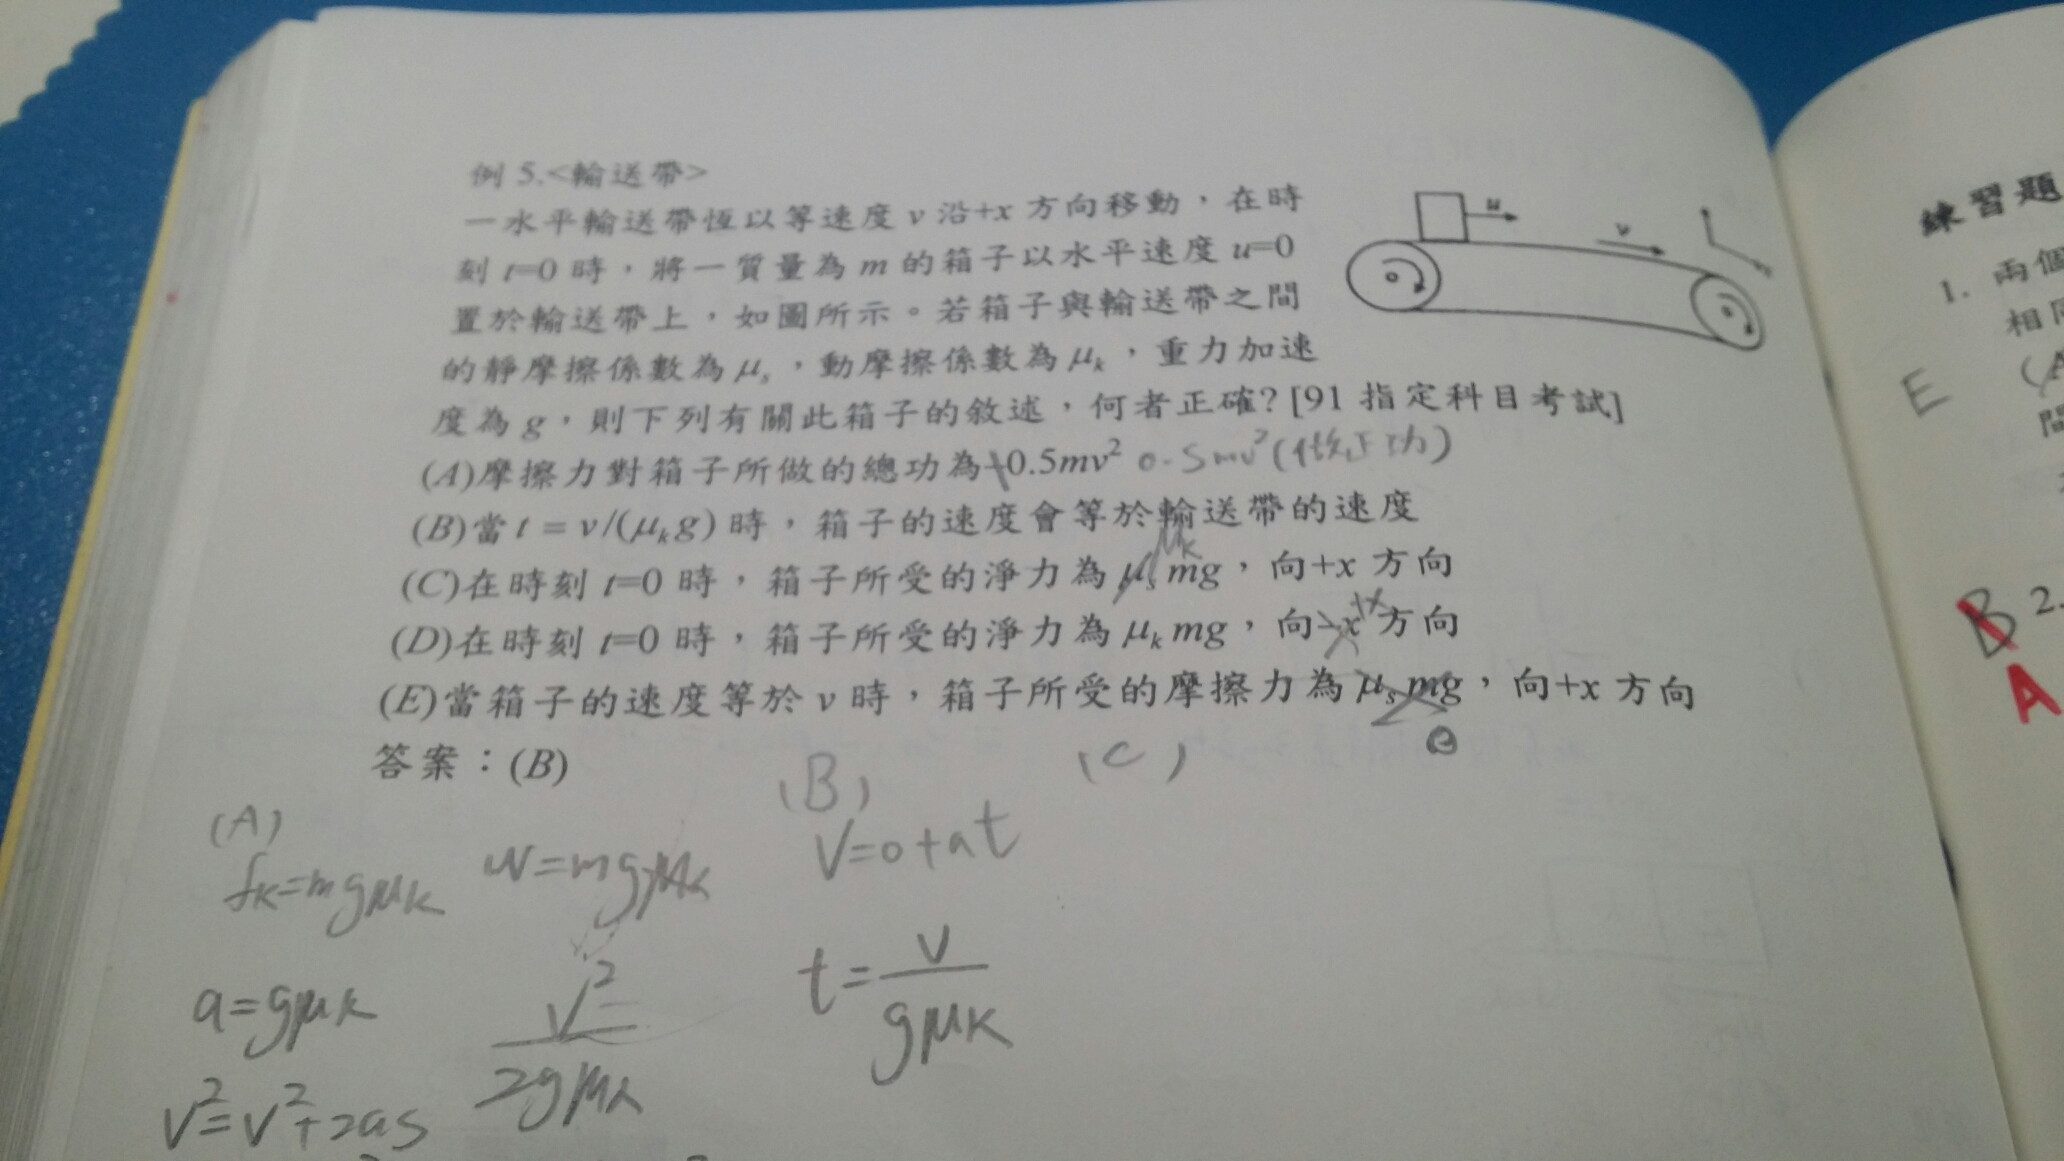 例 5.<輸送帶>
一水平輸送帶恆以等速度 v 沿+x 方向移動，在時
刻 t=0 時，將一質量為 m 的箱子以水平速度 u=0
置於輸送帶上，如圖所示。若箱子與輸送帶之間
的靜摩擦係數為 μs，動摩擦係數為 μk，重力加速
度為 g，則下列有關此箱子的敘述，何者正確? [91 指定科目考試]
(A)摩擦力對箱子所做的總功為-0.5mv² 0.5mv²(做正功)
(B)當 t = v/(μkg) 時，箱子的速度會等於輸送帶的速度
μk
(C)在時刻 t=0 時，箱子所受的淨力為 μs mg，向+x 方向
+x
(D)在時刻 t=0 時，箱子所受的淨力為 μk mg，向-x 方向
(E)當箱子的速度等於 v 時，箱子所受的摩擦力為 μs mg，向+x 方向
答案：(B)
u
v
(A)
fk=mgμk
a=gμk
v²=v²+2as
w=mgμk
v²
2gμk
(B)
V=0+at
t=v/gμk
(C)
練習題
1. 兩個
相同
(A
間
E
B 2.
A